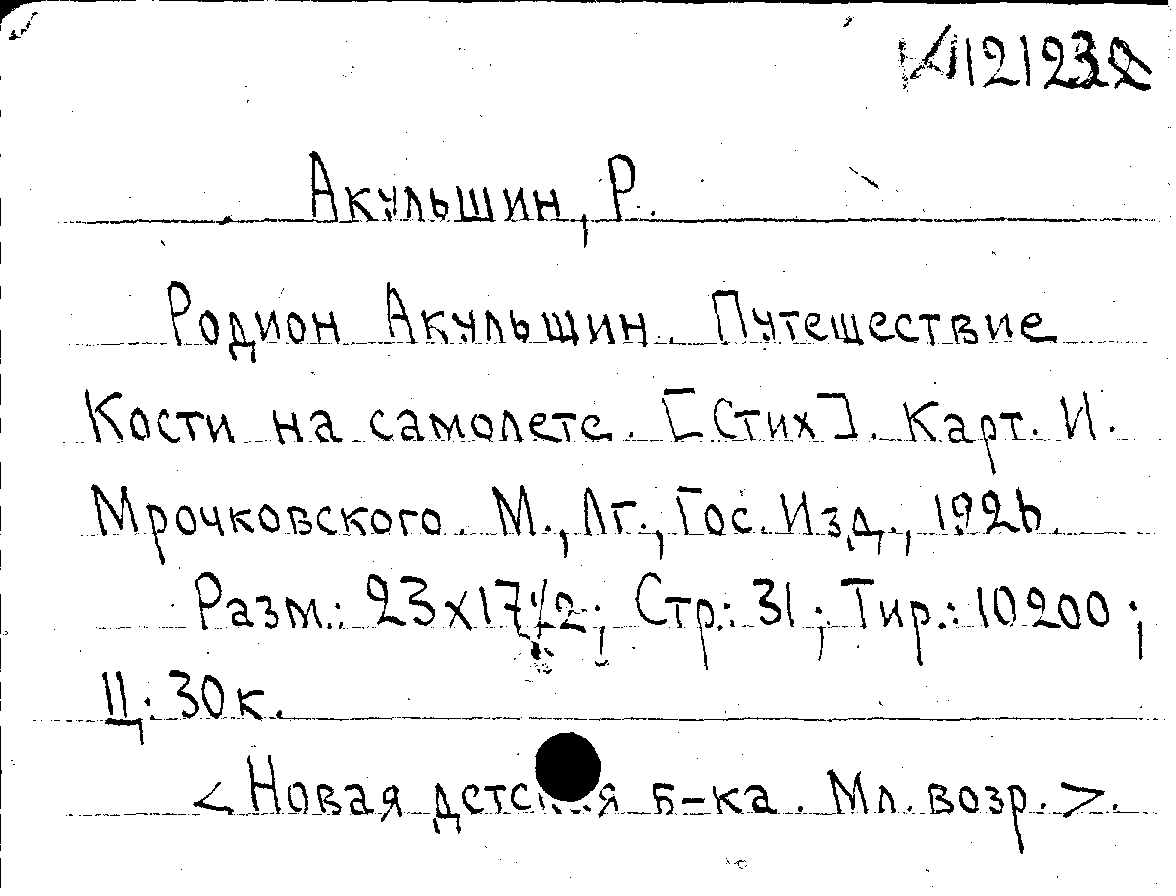 Акульшин, Р.
Родион Акульшин. Путешествие
Кости на самолете. [Стих]. Карт. И.
Мрочковского. М., Лг., Гос. Изд., 1926.
Разм.: 23х17 1/2; Стр.: 31; Тир.: 10200;
Ц. 30 к.
<Новая б-ка. Мл. возр.>.